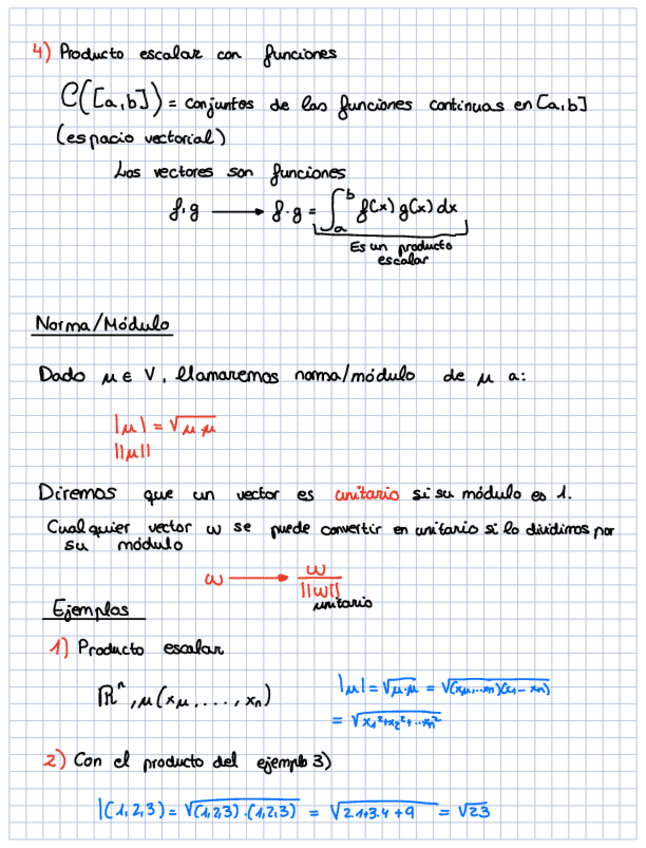 4) Producto escalar con funciones
C([a,b]) = conjuntos de las funciones continuas en [a,b]
(espacio vectorial)
Los vectores son funciones
f,g → f·g = ∫_a^b f(x)g(x)dx
Es un producto
escalar
Norma/Módulo
Dado μ ∈ V, llamaremos norma/módulo de μ a:
|μ| = √μ·μ
||μ||
Diremos que un vector es unitario si su módulo es 1.
Cualquier vector ω se puede convertir en unitario si lo dividimos por
su módulo
ω → ω/||ω||
unitario
Ejemplos
1) Producto escalar
ℝⁿ, μ(xμ, ..., xₙ) |μ| = √μ·μ = √(xμ,...xn)(x1-xn)
= √x₁²+x₂²+...xn²
2) Con el producto del ejemplo 3)
|(1,2,3) = √(1,2,3)·(1,2,3) = √2·1+3·4+9 = √23